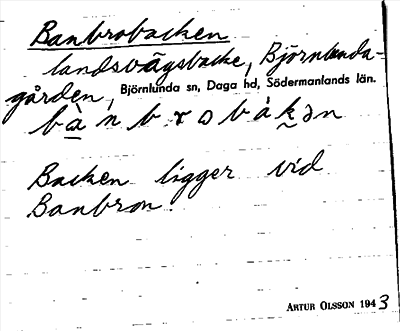 Banbrobacken
landsvägsbacke, Björnlunda-
gården, Björnlunda sn, Daga hd, Södermanlands län.
bànbrobàkən
Backen ligger vid
Banbron.
ARTUR OLSSON 1943